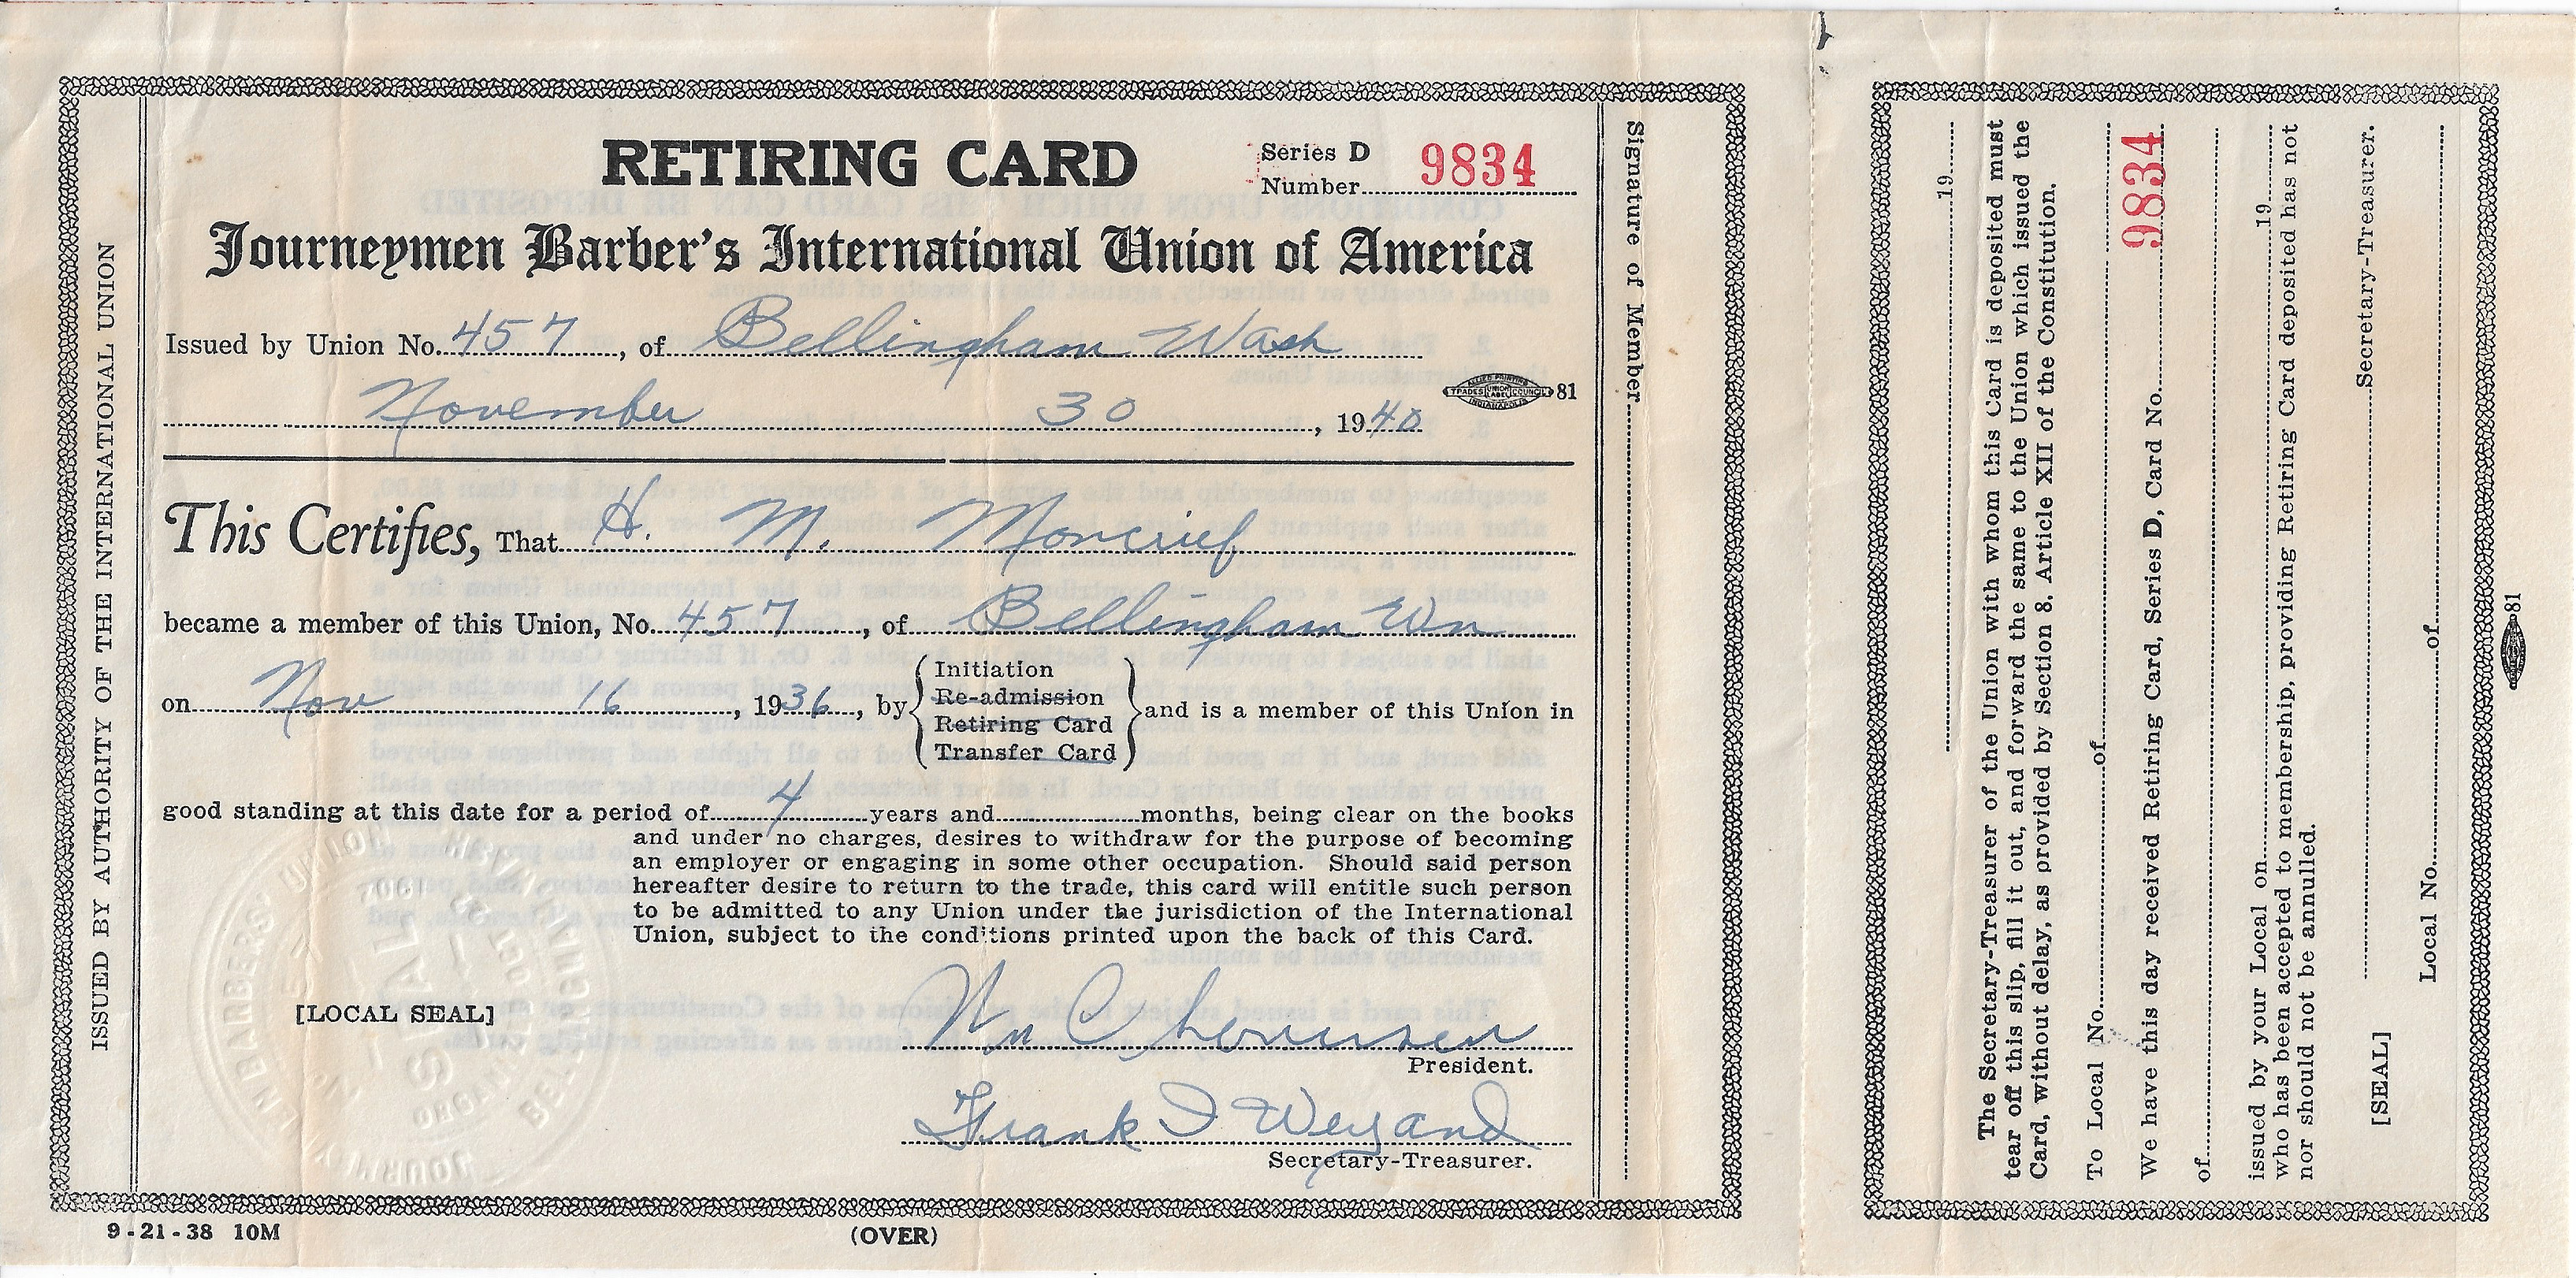 RETIRING CARD
Series D
Number 9834
Journeymen Barber's International Union of America
Issued by Union No. 457, of Bellingham Wash
November 30, 1940
ALLIED PRINTING
TRADES UNION LABEL COUNCIL 81
INDIANAPOLIS
This Certifies, That H. M. Moncrief
became a member of this Union, No. 457, of Bellingham Wn
on Nov 16, 1936, by
Initiation
Re-admission
Retiring Card
Transfer Card
and is a member of this Union in
good standing at this date for a period of 4 years and months, being clear on the books
and under no charges, desires to withdraw for the purpose of becoming
an employer or engaging in some other occupation. Should said person
hereafter desire to return to the trade, this card will entitle such person
to be admitted to any Union under the jurisdiction of the International
Union, subject to the conditions printed upon the back of this Card.
[LOCAL SEAL]
Wm
President.
Frank I Weyand
Secretary-Treasurer.
9-21-38 10M
(OVER)
ISSUED BY AUTHORITY OF THE INTERNATIONAL UNION
Signature of Member
19
The Secretary-Treasurer of the Union with whom this Card is deposited must
tear off this slip, fill it out, and forward the same to the Union which issued the
Card, without delay, as provided by Section 8, Article XII of the Constitution.
To Local No. of
We have this day received Retiring Card, Series D, Card No. 9834
of
issued by your Local on 19
who has been accepted to membership, providing Retiring Card deposited has not
nor should not be annulled.
Secretary-Treasurer.
[SEAL]
Local No. of
81